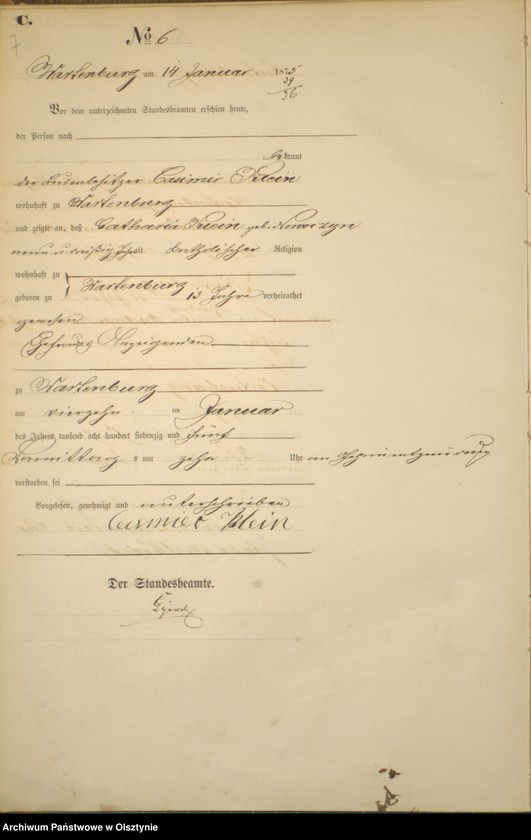 C.
7
No 6
Wartenburg am 14 Januar 1875
39
36
Vor dem unterzeichneten Standesbeamten erschien heute,
der Person nach
bekannt
der Casimir Klein
wohnhaft zu Wartenburg
und zeigte an, daß Catharina Klein geb.
neun u. dreißig Jahre alt katholischer Religion
wohnhaft zu
geboren zu Wartenburg 13 Jahre verheirathet
gewesen
Ehefrau des Anzeigenden
zu Wartenburg
am vierzehn ten Januar
des Jahres tausend acht hundert siebenzig und fünf
Vormittags um zehn Uhr an
verstorben sei
Vorgelesen, genehmigt und unterschrieben
Casimir Klein
Der Standesbeamte.
Archiwum Państwowe w Olsztynie